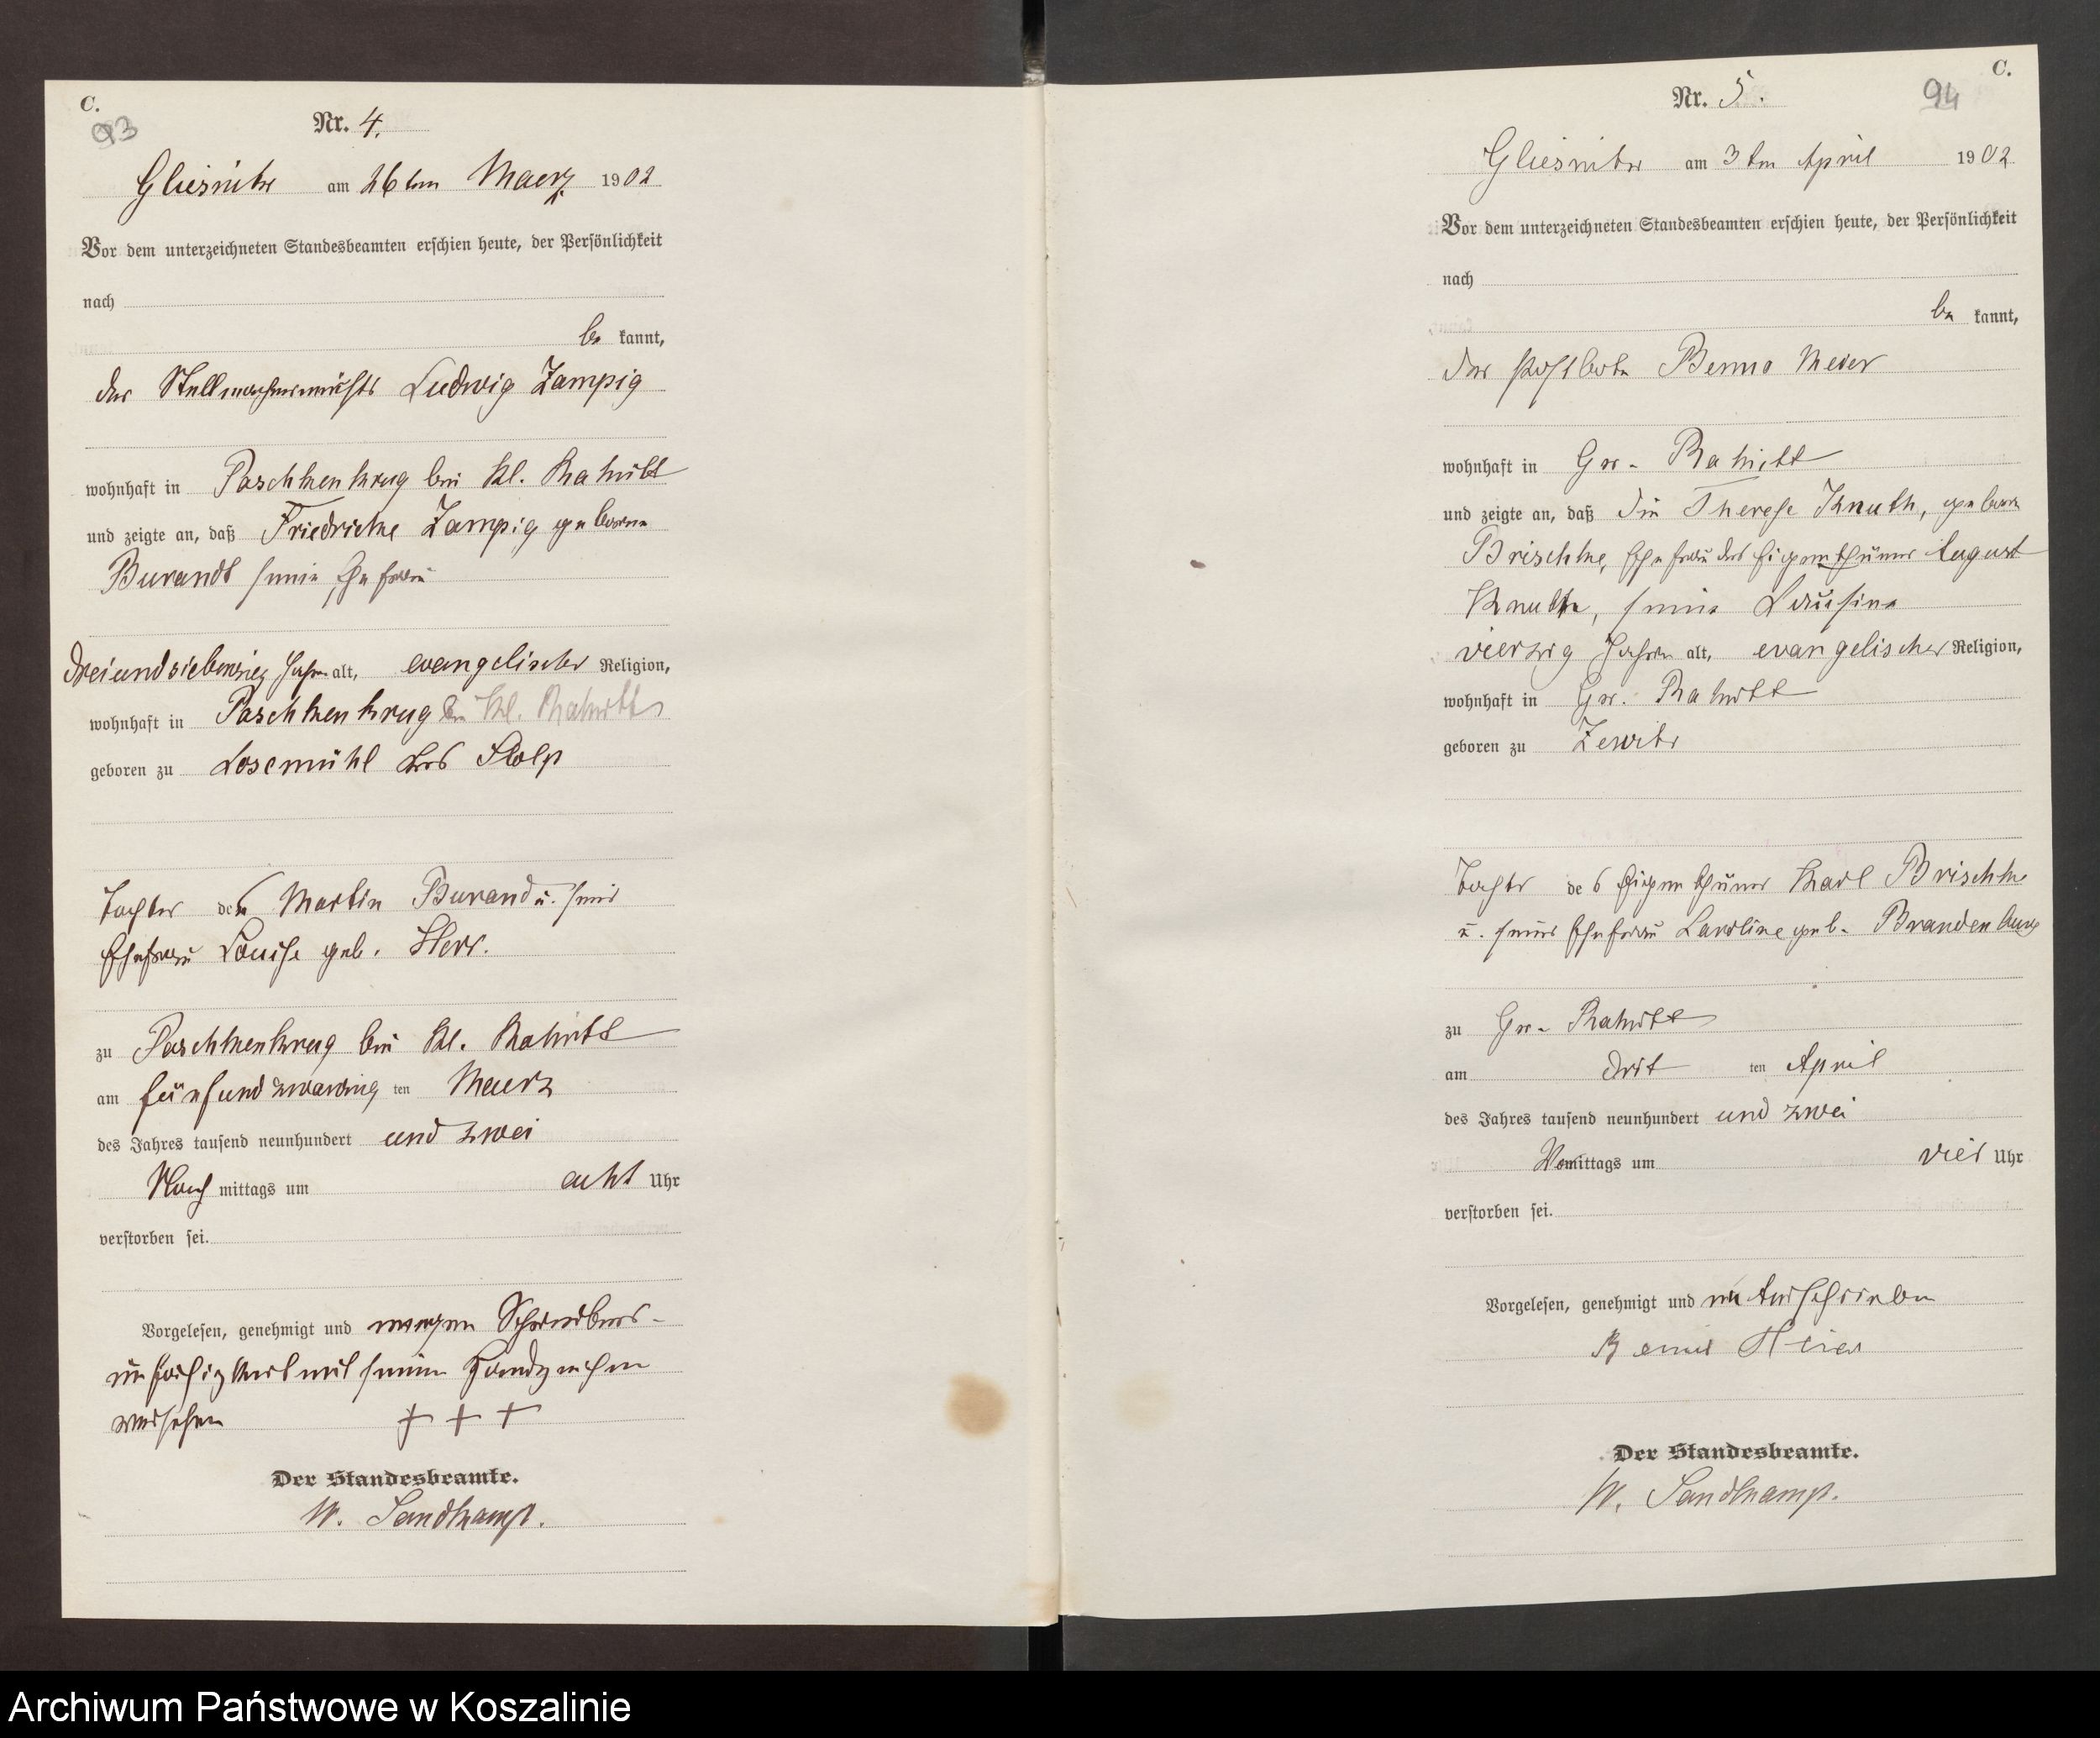 C.
93
Nr. 4.
Gliesnitz am 26ten Maerz 1902
Vor dem unterzeichneten Standesbeamten erschien heute, der Persönlichkeit
nach
be kannt,
der Stellmachermeister Ludwig Zampig
wohnhaft in Paschkenkrug bei Kl. Rakitt
und zeigte an, daß Friedricke Zampig geborene
Burandt seine Ehefrau
dreiundsiebenzig Jahre alt, evangelischer Religion,
wohnhaft in Paschkenkrug bei Kl. Rakitt
geboren zu Losemühl Krs Stolp
Tochter des Martin Burand u. seiner
Ehefrau Louise geb.
zu Paschkenkrug bei Kl. Rakitt
am fünfundzwanzig ten Maerz
des Jahres tausend neunhundert und zwei
Nach mittags um acht Uhr
verstorben sei.
Vorgelesen, genehmigt und wegen Schreibens-
unfaehigkeit mit seinem Handzeichen
versehen + + +
Der Standesbeamte.
W. Sandkamp.
C.
94
Nr. 5.
Gliesnitz am 3ten April 1902
Vor dem unterzeichneten Standesbeamten erschien heute, der Persönlichkeit
nach
be kannt,
der Postbote Benno Meier
wohnhaft in Gr. Rakitt
und zeigte an, daß die Therese Knuth, geborn
Brischke, Ehefrau des Eigenthümer August
Knuth, seine
vierzig Jahre alt, evangelischer Religion,
wohnhaft in Gr. Rakitt
geboren zu Zewitz
Tochter des Eigenthümer Karl Brischke
u. seiner Ehefrau Karoline geb. Brandenburg
zu Gr. Rakitt
am drit ten April
des Jahres tausend neunhundert und zwei
Vormittags um vier Uhr
verstorben sei.
Vorgelesen, genehmigt und unterschrieben
Der Standesbeamte.
W. Sandkamp.
Archiwum Państwowe w Koszalinie